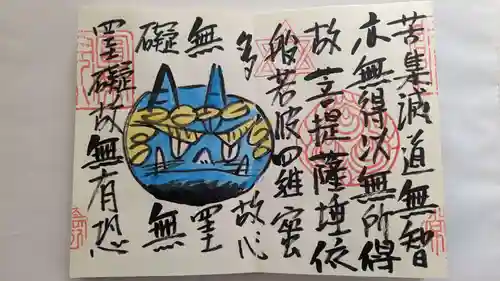 苦集滅道無智
亦無得以無所得
故菩提薩埵依
般若波羅蜜
多
故心
無
罣
礙
無
罣礙故無有恐